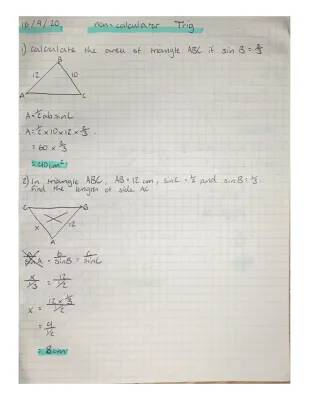 16/9/20 non-calculator Trig
1) Calculate the area of triangle ABC if sin B = 2/3
B
12 10
A C
A = 1/2 ab sin C
A = 1/2 x 10 x 12 x 2/3
= 60 x 2/3
= 40cm²
2) In triangle ABC, AB = 12 cm, sin C = 1/2 and sin B = 1/3.
Find the length of side AC
C B
x 12
A
a/sin A = b/sin B = c/sin C
x/1/3 = 12/1/2
x = 12 x 1/3/1/2
= 4/1/2
= 8cm